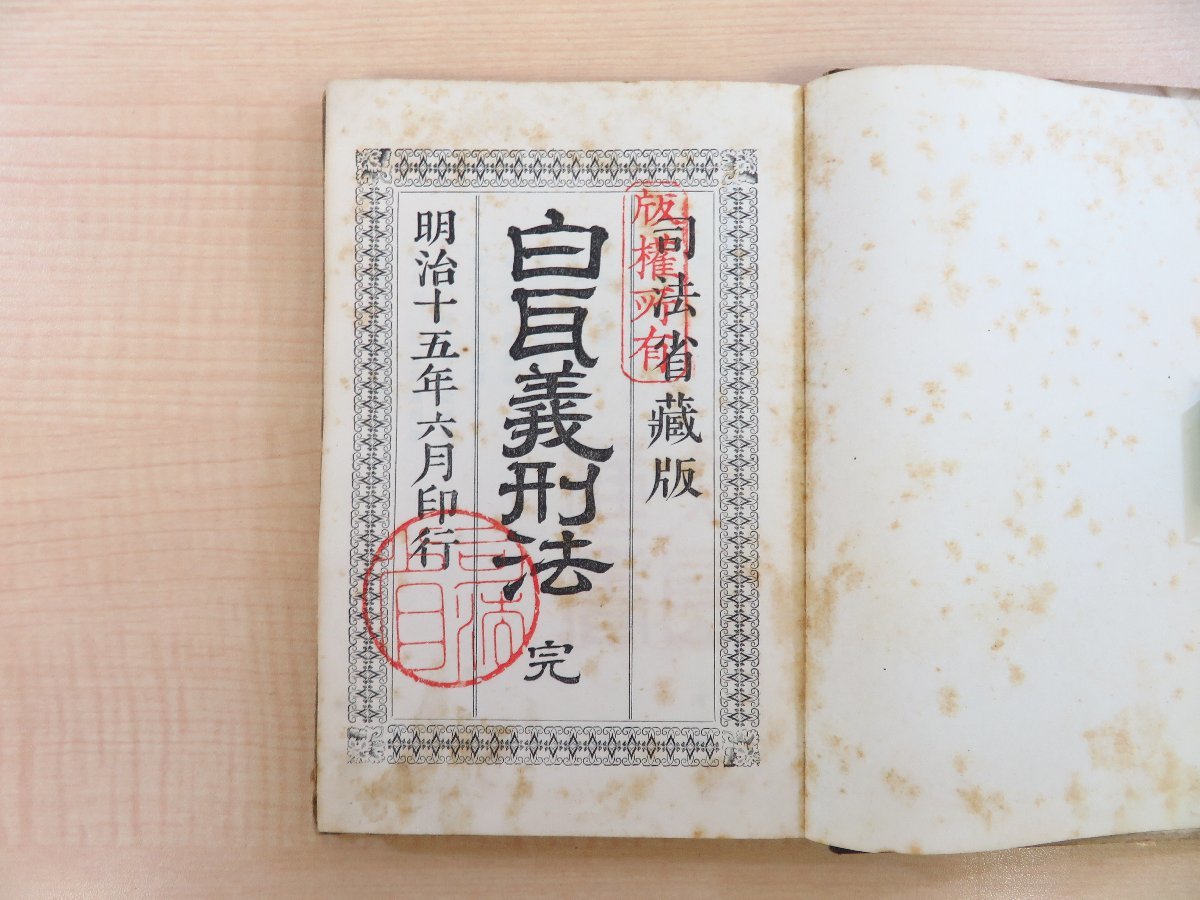 司法省藏版
版權所有
白耳義刑法 完
明治十五年六月印行
司法省